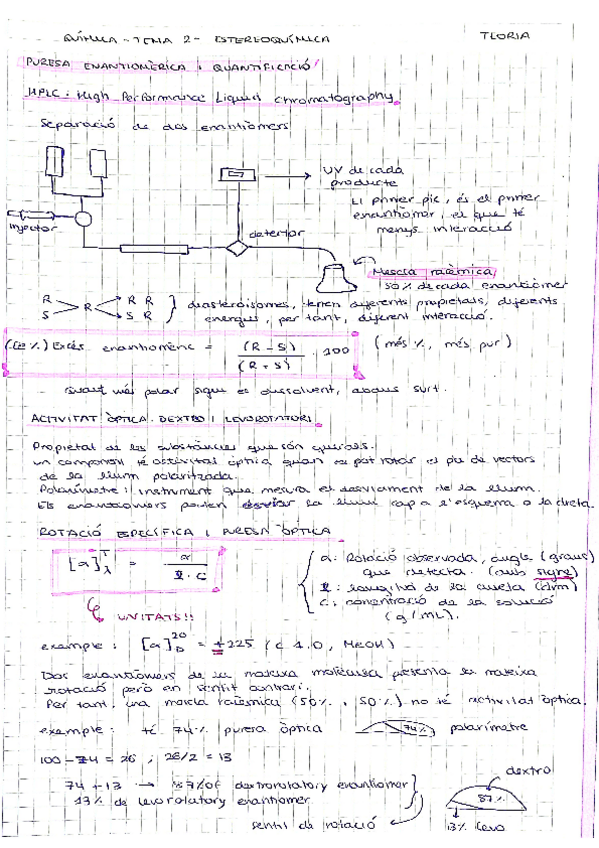 QUÍMICA - TEMA 2 - ESTEREOQUÍMICA
TEORIA
PURESA ENANTIOMÈRICA I QUANTIFICACIÓ
HPLC: High Performance Liquid Chromatography
Separació de dos enantiòmers
UV de cada
producte
Injector
detector
El primer pic, és el primer
enantiòmer, el que té
menys interacció
Mescla racèmica
50% de cada enantiòmer
R
S
R
R R
S R
diasteroisomes, tenen diferents propietats, diferents
energies, per tant, diferent interacció.
(ee%) Excés enantiomèric = (R - S) / (R + S) · 100
(més %, més pur)
més polar sigui el dissolvent, abans surt.
ACTIVITAT ÒPTICA. DEXTRO I LEVOROTATORI
Propietat de les substàncies que són quirals.
Un component té activitat òptica quan es pot rotar el pla de vectors
de la llum polaritzada.
Polarímetre: instrument que mesura el desviament de la llum.
Els enantiosomers poden desviar la llum cap a l'esquerra o la dreta.
ROTACIÓ ESPECÍFICA I PURESA ÒPTICA
[α]Tλ = α / l · c
α: Rotació observada, angle (graus)
que detecta. (amb signe)
l: longitud de la cueta (dm)
c: concentració de la solució
(g/mL).
UNITATS!!
exemple: [α]20D = +225 (c 1.0, MeOH)
Dos enantiòmers de la mateixa molècula presenta la mateixa
rotació però en sentit contrari.
Per tant, una mescla racèmica (50%, 50%) no té activitat òptica.
exemple: té 74% puresa òptica
74%
polarímetre
100 - 74 = 26 ; 26/2 = 13
74 + 13 → 87% of dextrorotatory enantiomer
13% de levorotatory enantiomer
sentit de rotació
dextro
87%
13% levo